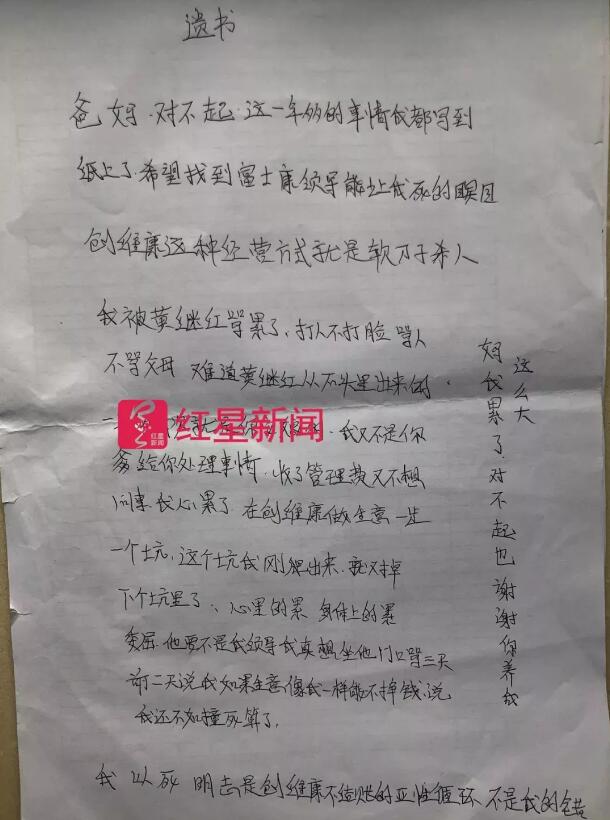 遗书
爸妈.对不起.这一年多的事情我都写到
纸上了.希望找到富士康领导能让我死的瞑目
创维康这种经营方式就是软刀子杀人
我被黄继红骂累了,打人不打脸 骂人
不骂父母 难道黄继红从石头里出来的.
就是你 我又不是你
给你处理事情.收了管理费又不想
问事.我心累了 在创维康做生意一步
一个坑,这个坑我刚爬出来.就又掉
下个坑里了,心里的累 身体上的累
委屈.他要不是我领导我真想坐他门口骂三天
前二天说我如果生意像我一样能不掉钱.说
我还不如撞死算了.
我以死明志是创维康不结账的恶性循环 不是我的错
妈我累了.对不起也谢谢你养我
这么大
红星新闻
红星新闻